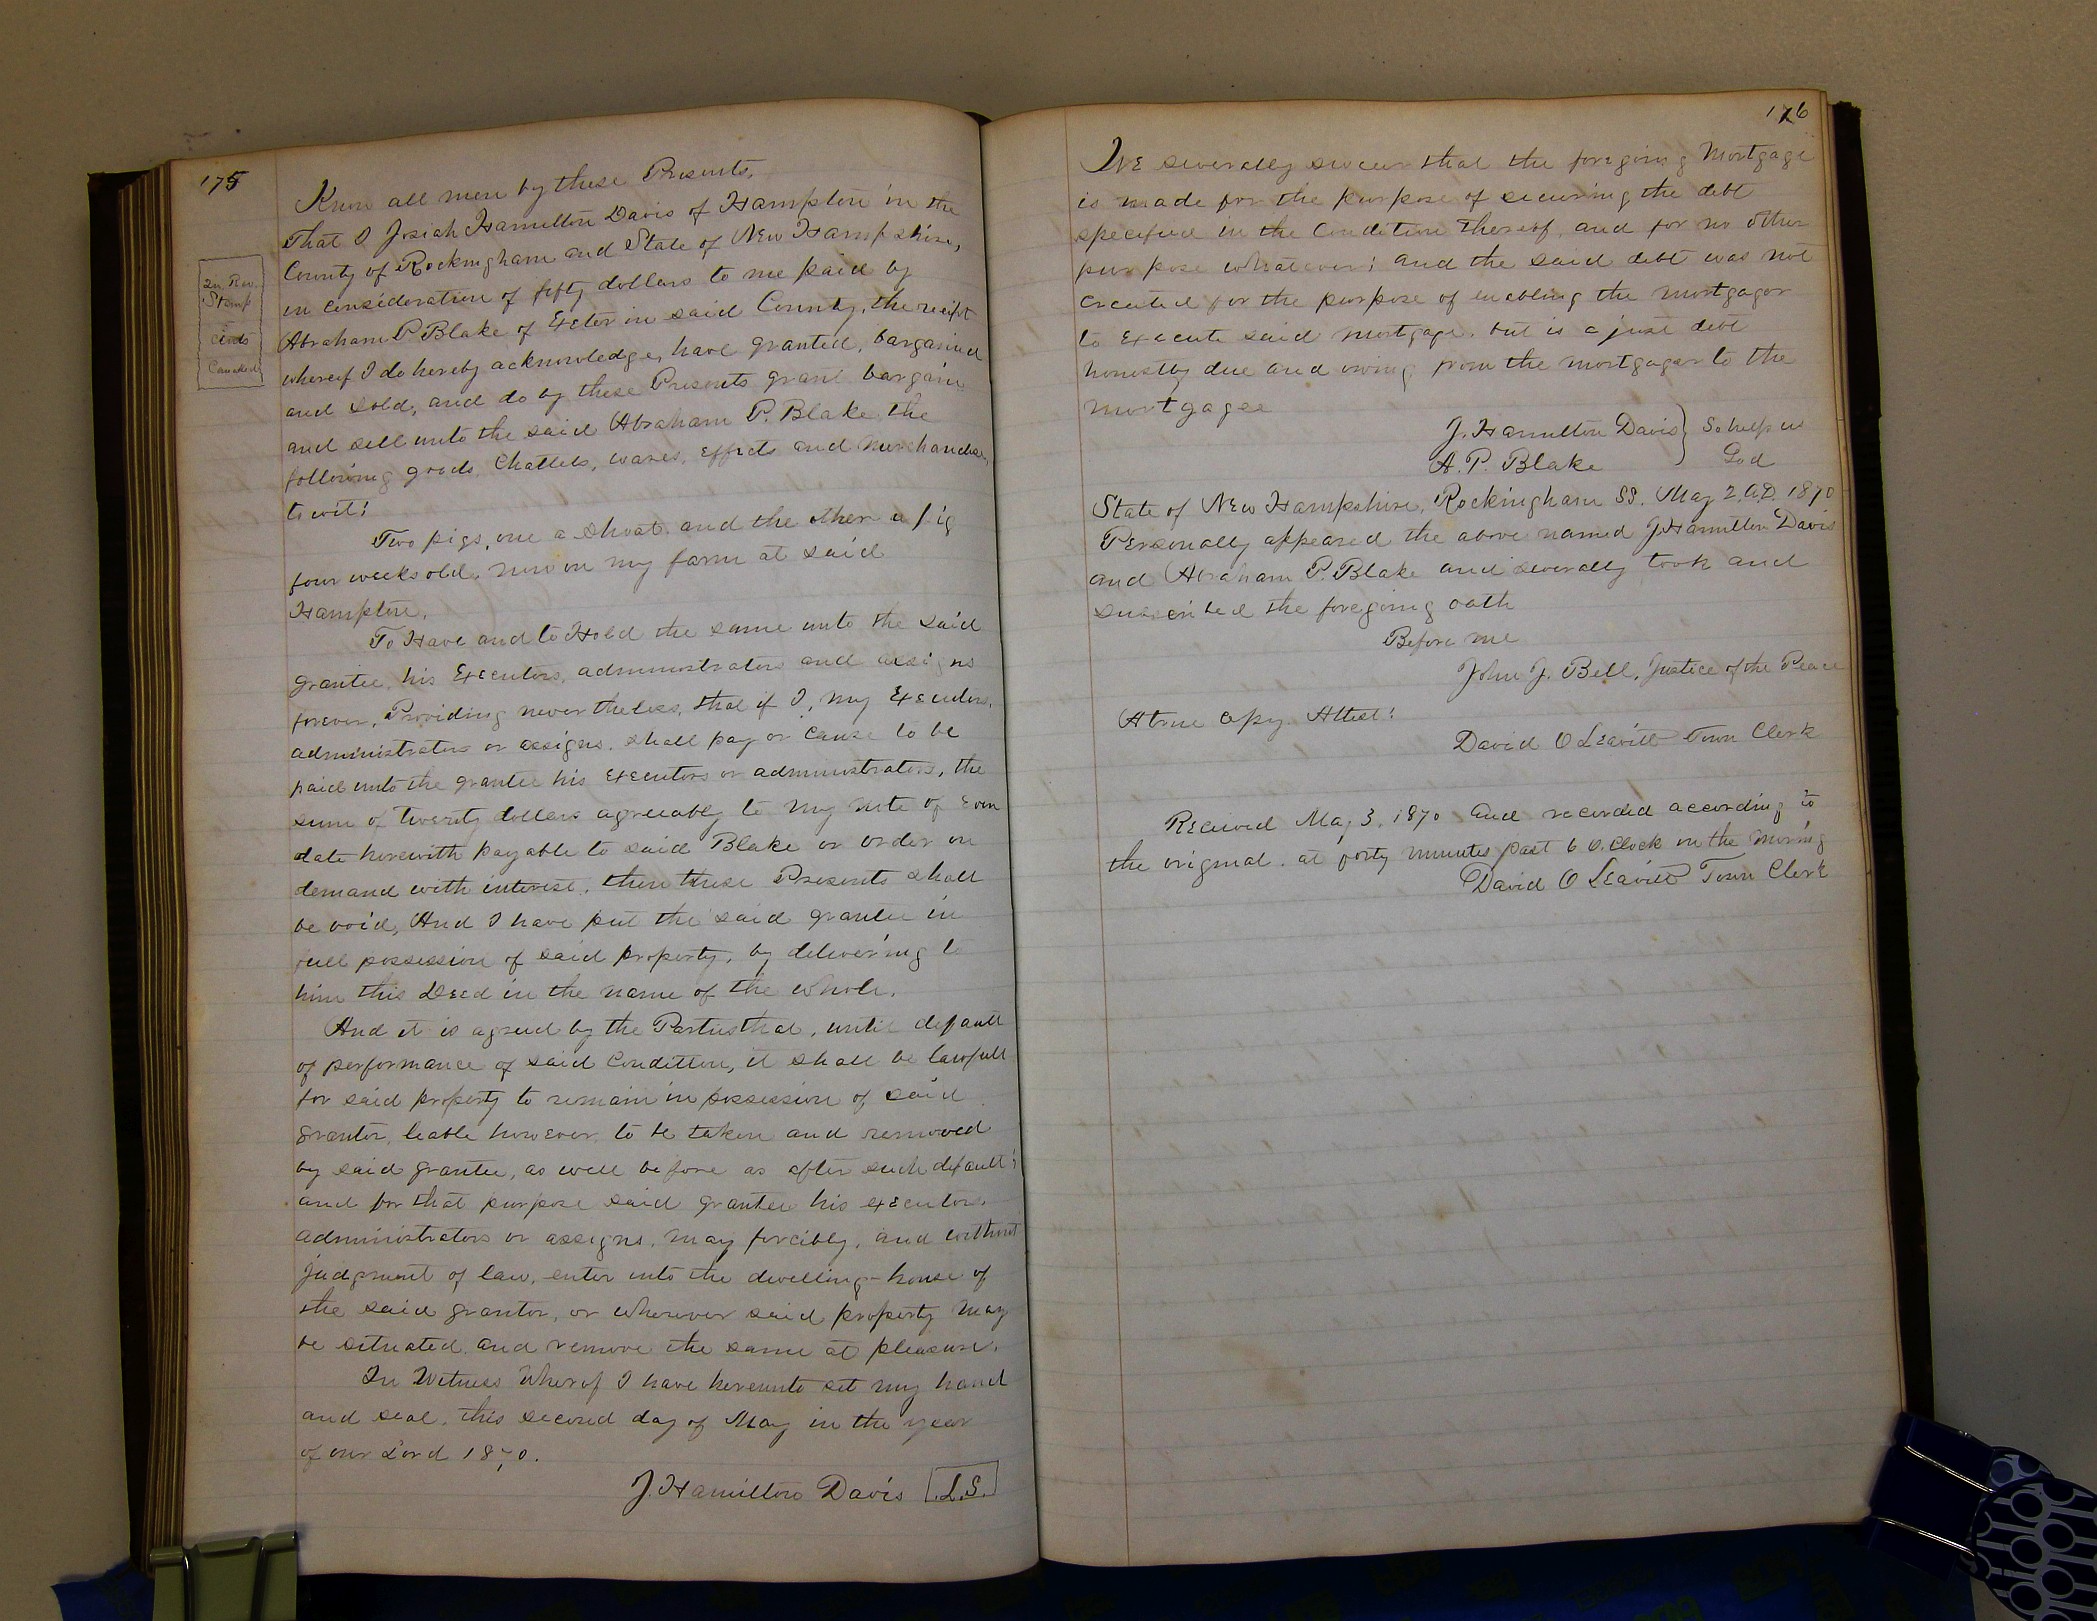 175
In. Rev.
Stamp
5
cents
Canceled
Know all men by these Presents,
That I Josiah Hamilton Davis of Hampton in the
County of Rockingham and State of New Hampshire,
in consideration of fifty dollars to me paid by
Abraham P Blake of Exeter in said County, the receipt
whereof I do hereby acknowledge, have granted, bargained
and sold, and do by these Presents grant bargain
and sell unto the said Abraham P. Blake the
following goods, Chattels, wares, effects and merchandise,
to wit:
Two pigs, one a shoat and the other a pig
four weeks old, now on my farm at said
Hampton.
To Have and to Hold the same unto the said
grantee, his Executors, administrators and assigns
forever, Providing never theless, that if I, my Executors,
administrators or assigns, shall pay or cause to be
paid unto the grantee his executors or administrators, the
sum of twenty dollars agreeably to my note of even
date herewith payable to said Blake or order on
demand with interest, then these Presents shall
be void, And I have put the said grantee in
full possession of said property, by delivering to
him this Deed in the name of the whole.
And it is agreed by the Parties that, until default
of performance of said Condition, it shall be lawfull
for said property to remain in possession of said
grantor, leable however to be taken and removed
by said grantee, as well before as after such default:
and for that purpose said grantee his executors,
administrators or assigns, may forcibly, and without
judgment of law, enter into the dwelling-house of
the said grantor, or wherever said property may
be situated, and remove the same at pleasure.
In Witness Wherof I have hereunto set my hand
and seal, this second day of May in the year
of our Lord 1870.
J. Hamilton Davis L.S.
176
We severally swear that the foregoing Mortgage
is made for the purpose of securing the debt
specified in the Condition thereof, and for no other
purpose whatever; and the said debt was not
created for the purpose of enabling the mortgagor
to execute said mortgage, but is a just debt
honestly due and owing from the mortgagor to the
mortgagee
J. Hamilton Davis } So help us
A. P. Blake God
State of New Hampshire, Rockingham SS. May 2, A.D. 1870
Personally appeared the above named J. Hamilton Davis
and Abraham P. Blake and severally took and
subscribed the foregoing oath
Before me
John J. Bell, Justice of the Peace
A true copy. Attest:
David O Leavitt Town Clerk
Received May 3, 1870 and recorded according to
the original. at forty minutes past 6 O.Clock in the morning
David O Leavitt Town Clerk